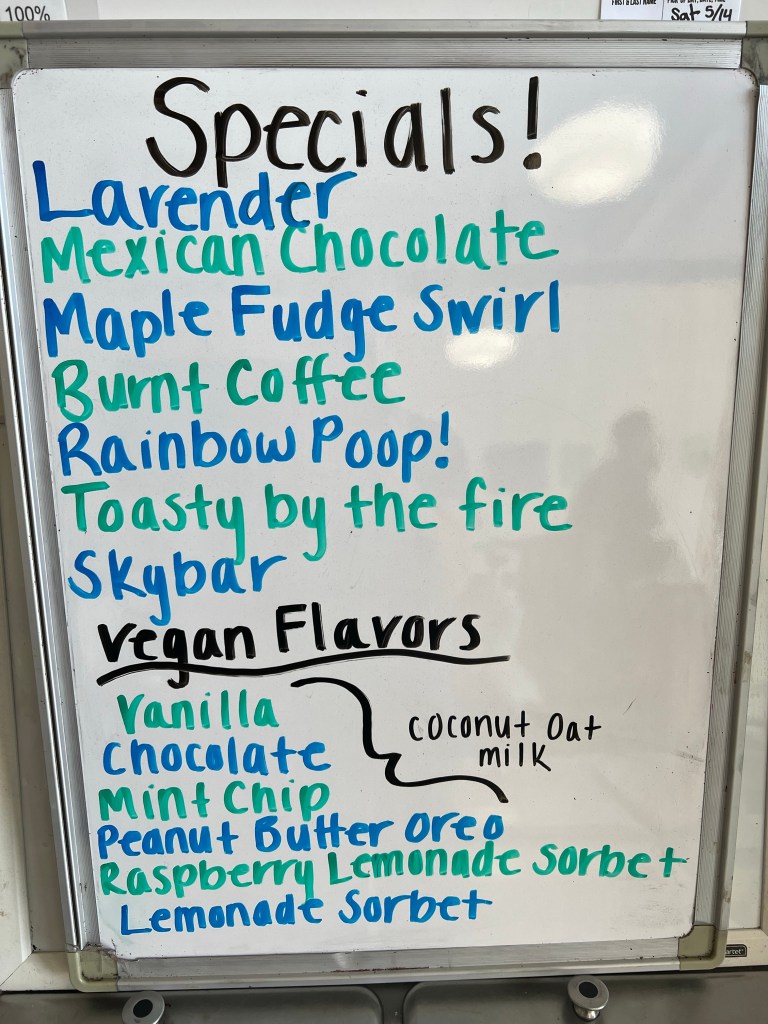 100%
FIRST & LAST NAME
Sat 5/14
Specials!
Lavender
Mexican Chocolate
Maple Fudge Swirl
Burnt Coffee
Rainbow Poop!
Toasty by the fire
Skybar
Vegan Flavors
Vanilla
Chocolate
Mint Chip
coconut oat
milk
Peanut Butter Oreo
Raspberry Lemonade Sorbet
Lemonade Sorbet